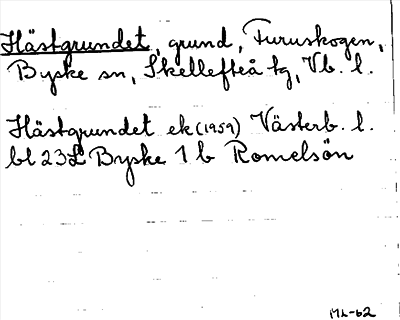 Hästgrundet, grund, Furuskogen,
Byske sn, Skellefteå tg, Vb. l.
Hästgrundet ek (1959) Västerb. l.
bl 23L Byske 1 b Romelsön
ML-62